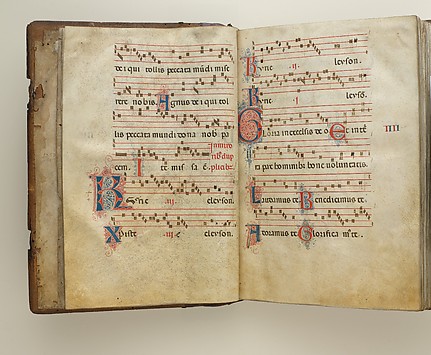 de i qui tollis peccata mūdi mise
rere nobis. Agnus de i qui tol
lis peccata mundi dona nob pa
cem. I te mis sa ē.
Kyrie .iii. eleyson.
Xpiste .iii. e eleyson.
Kyrie .ii. leyson.
Kyrie i leysō.
Gloria in excelsis de o Et in te
ra pax hominibz bone voluntatis.
Laudamus te. Benedicimus te.
Adoramus te Glorifica m' te.
IIII